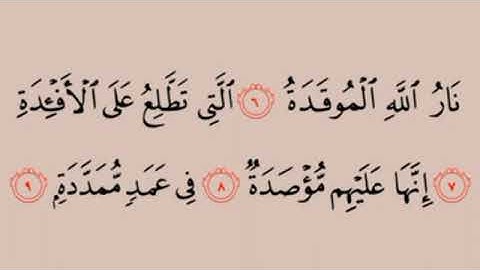 نَارُ ٱللَّهِ ٱلۡمُوقَدَةُ ٦ ٱلَّتِي تَطَّلِعُ عَلَى ٱلۡأَفۡـِٔدَةِ
٧ إِنَّهَا عَلَيۡهِم مُّؤۡصَدَةٞ ٨ فِي عَمَدٖ مُّمَدَّدَةِۭ ٩